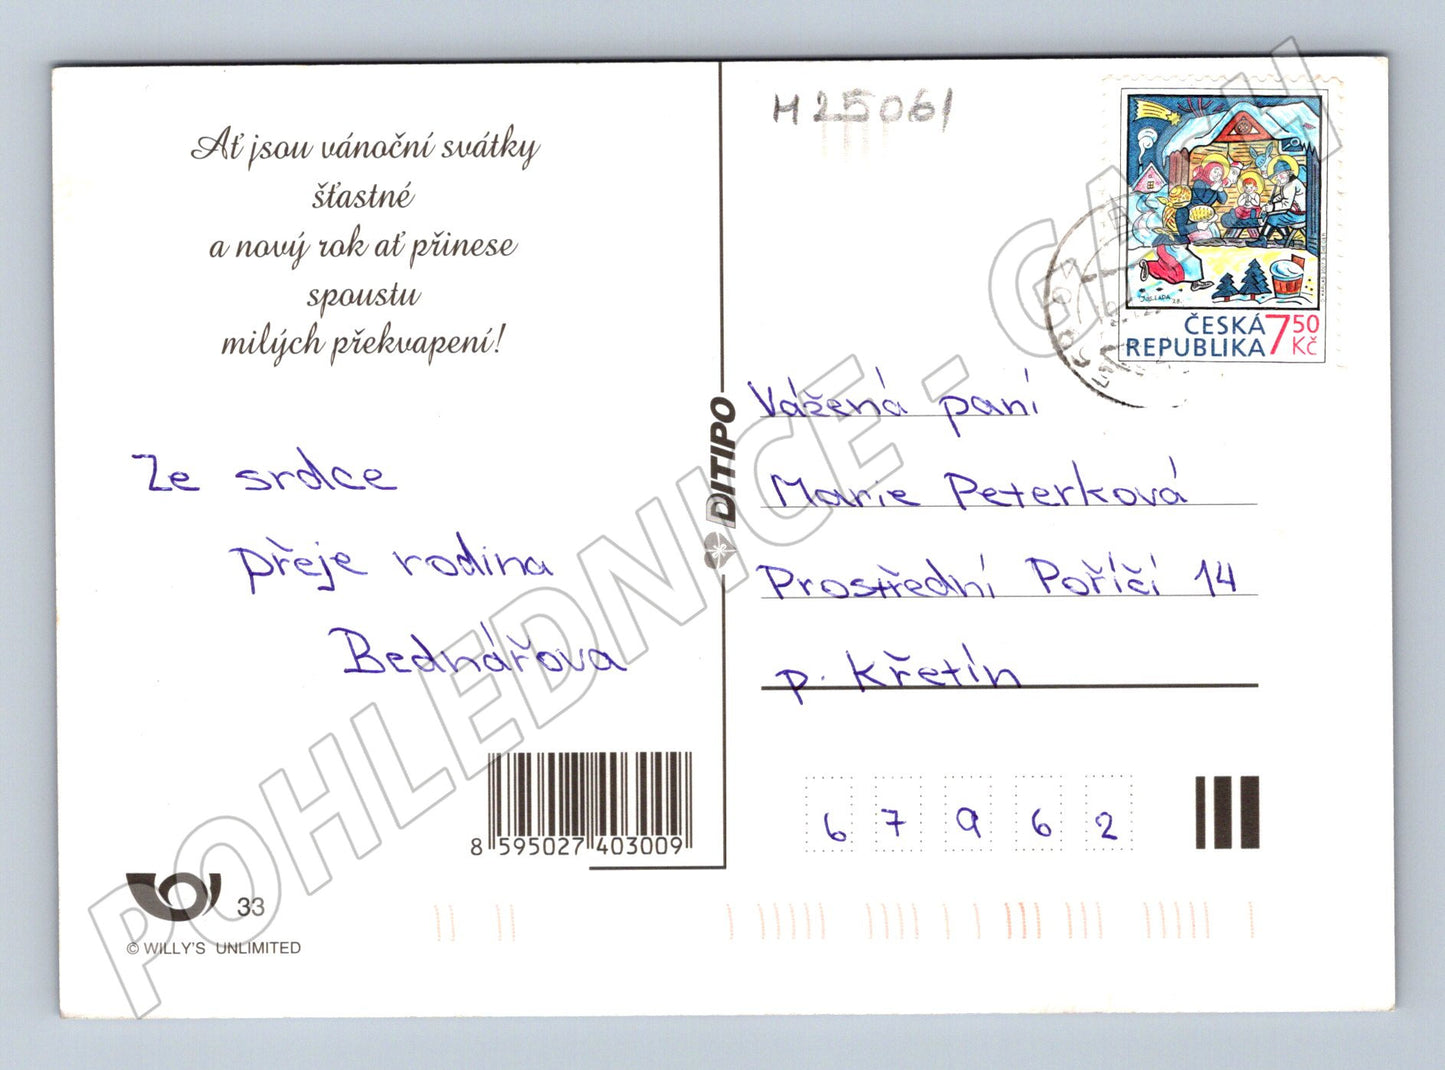 Ať jsou vánoční svátky
šťastné
a nový rok ať přinese
spoustu
milých překvapení!
Ze srdce
přeje rodina
Bednářova
8 595027 403009
33
© WILLY'S UNLIMITED
DITIPO
H 25061
JOS. LADA
ČESKÁ
REPUBLIKA 7 50 Kč
Vážená paní
Marie Peterková
Prostřední Poříčí 14
p. Křetín
6 7 9 6 2
POHLEDNICE - GALASH